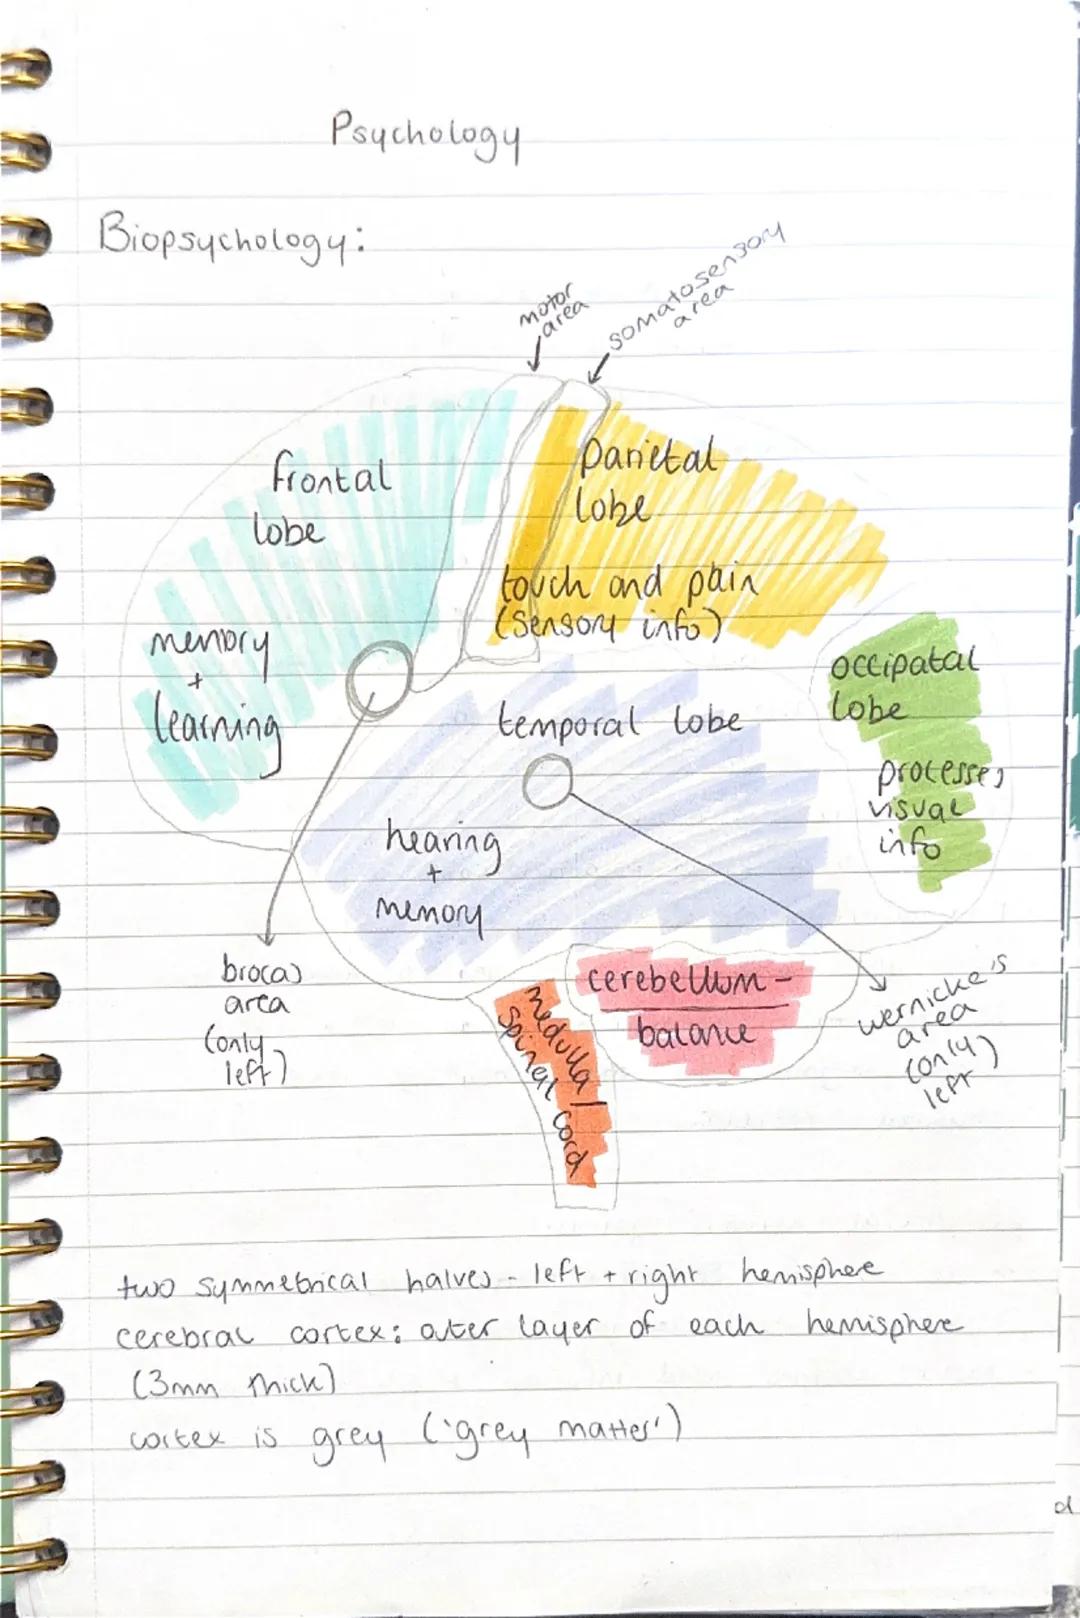 Psychology
Biopsychology:
motor
area
somatosensory
area
frontal
lobe
parietal
lobe
touch and pain
(sensory info)
memory
+
learning
occipatal
lobe
processes
visual
info
temporal lobe
hearing
+
memory
brocas
area
(only
left)
cerebellum -
balance
medulla/
spinal cord
wernicke's
area
(only
left)
two symmetrical halves - left + right hemisphere
cerebral cortex: outer layer of each hemisphere
(3mm thick)
cortex is grey ('grey matter')
d